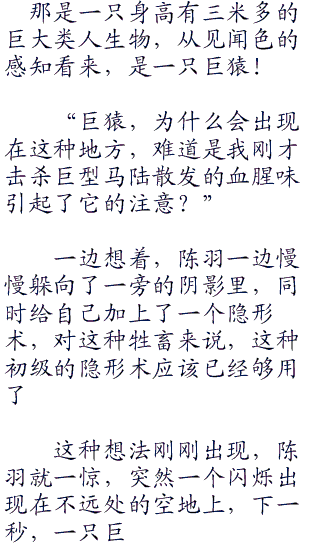 那是一只身高有三米多的
巨大类人生物，从见闻色的
感知看来，是一只巨猿！
“巨猿，为什么会出现
在这种地方，难道是我刚才
击杀巨型马陆散发的血腥味
引起了它的注意？”
一边想着，陈羽一边慢
慢躲向了一旁的阴影里，同
时给自己加上了一个隐形
术，对这种牲畜来说，这种
初级的隐形术应该已经够用
了
这种想法刚刚出现，陈
羽就一惊，突然一个闪烁出
现在不远处的空地上，下一
秒，一只巨